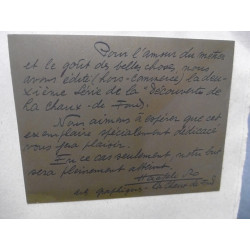 Pour l'amour du métier
et le goût des belles choses, nous
avons édité (hors-commerce) la deu-
xième série de la "découverte de
la Chaux-de-Fonds.
Nous aimons à espérer que cet
exemplaire spécialement dédicacé
vous fera plaisir.
En ce cas seulement notre but
sera pleinement atteint.
art graphique - La Chaux-de-Fds